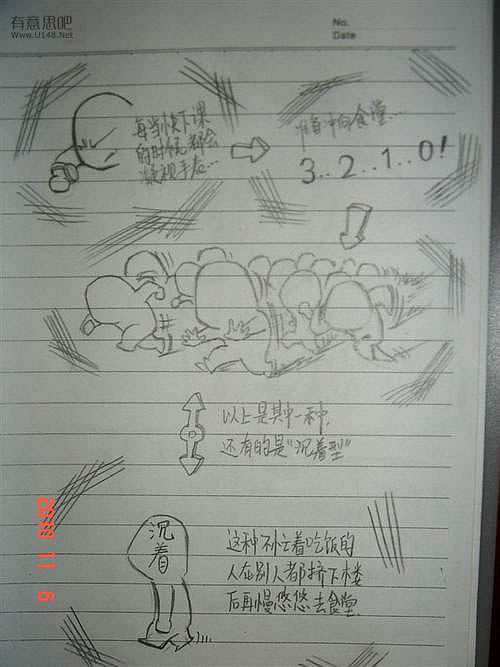 有意思吧
www.U148.Net
No.
Date
每当快下课
的时候,都会
凝视手表…
准备冲向食堂…
3..2..1..0!
以上是其中一种,
还有的是"沉着型"
沉着
这种不忙着吃饭的
人在别人都挤下楼
后再慢悠悠去食堂.
2010 11 6